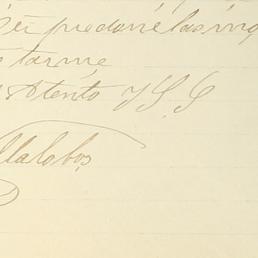 perdoné las inq
tarme
Atento y S. S
llalobos